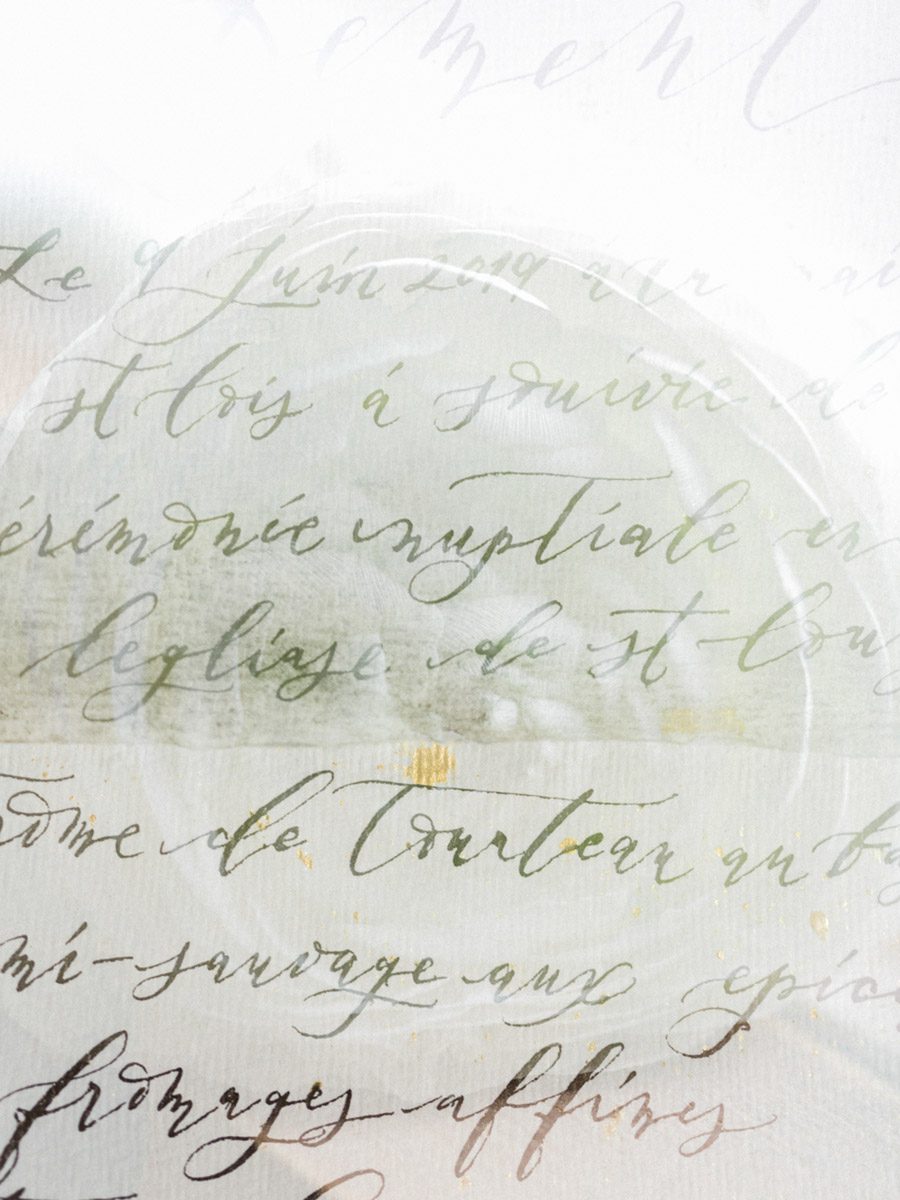 ement
Le 9 Juin 2019
st lois á souivie de
érémonie nuptiale en
leglise de st lou
rome de Tourteau au
mi-sauvage aux epic
fromages affines